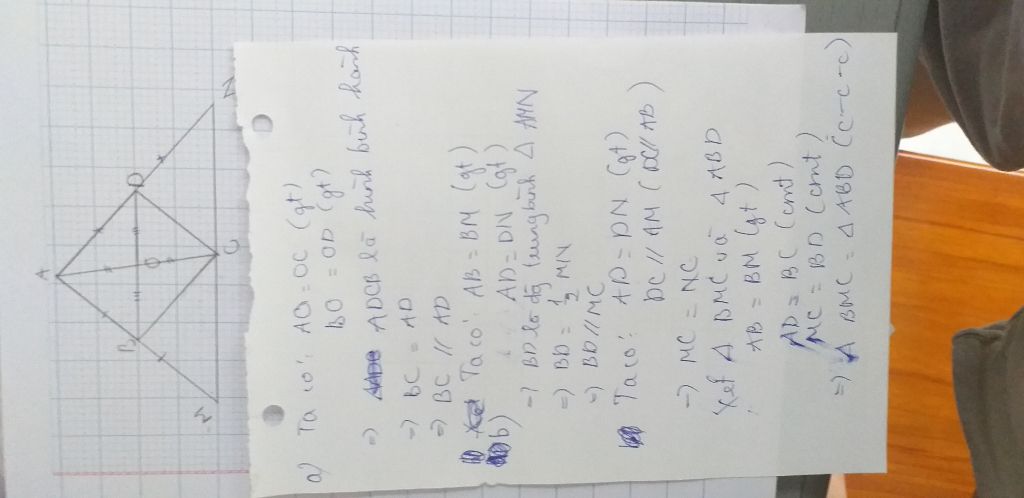 A
B
O
D
C
M
N
a) Ta có: AO = OC (gt)
BO = OD (gt)
=> ADCB là hình bình hành
=> BC = AD
=> BC // AD
b) Ta có: AB = BM (gt)
AD = DN (gt)
=> BD là đg trung bình Δ AMN
=> BD = 1/2 MN
=> BD // MC
Ta có: AD = DN (gt)
DC // AM (DC // AB)
=> MC = NC
Xét Δ BMC và Δ ABD
AB = BM (gt)
AD = BC (cmt)
MC = BD (cmt)
=> Δ BMC = Δ ABD (c-c-c)